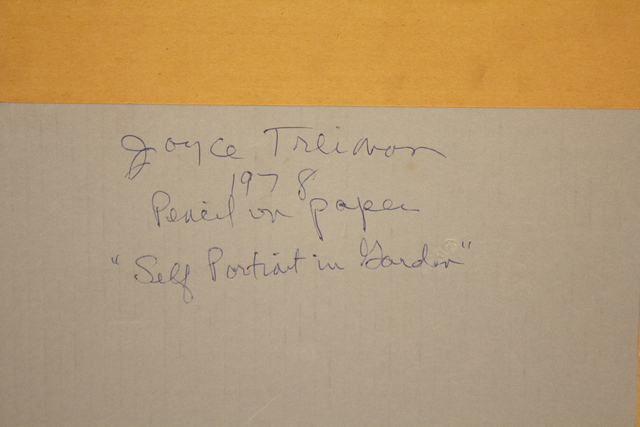 Joyce Treiman
1978
Pencil on paper
"Self Portrait in Garden"